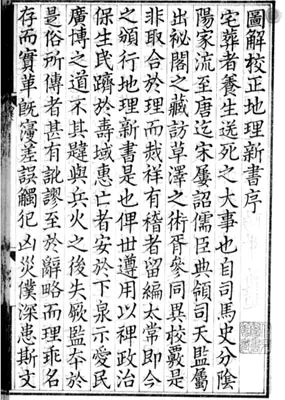 圖解校正地理新書序
宅葬者養生送死之大事也自司馬史分陰
陽家流至唐迄宋屢詔儒臣典領司天監屬
出祕閣之藏訪草澤之術胥參同異校覈是
非取合於理而災祥有稽者留編太常即今
之頒行地理新書是也俾世遵用以裨政治
保生民躋於壽域惠亡者安於下泉示愛民
廣博之道不其韙與兵火之後失厥監本於
是俗所傳者甚有訛謬至於辭略而理乖名
存而實革既濅差誤觸犯凶災僕深患斯文